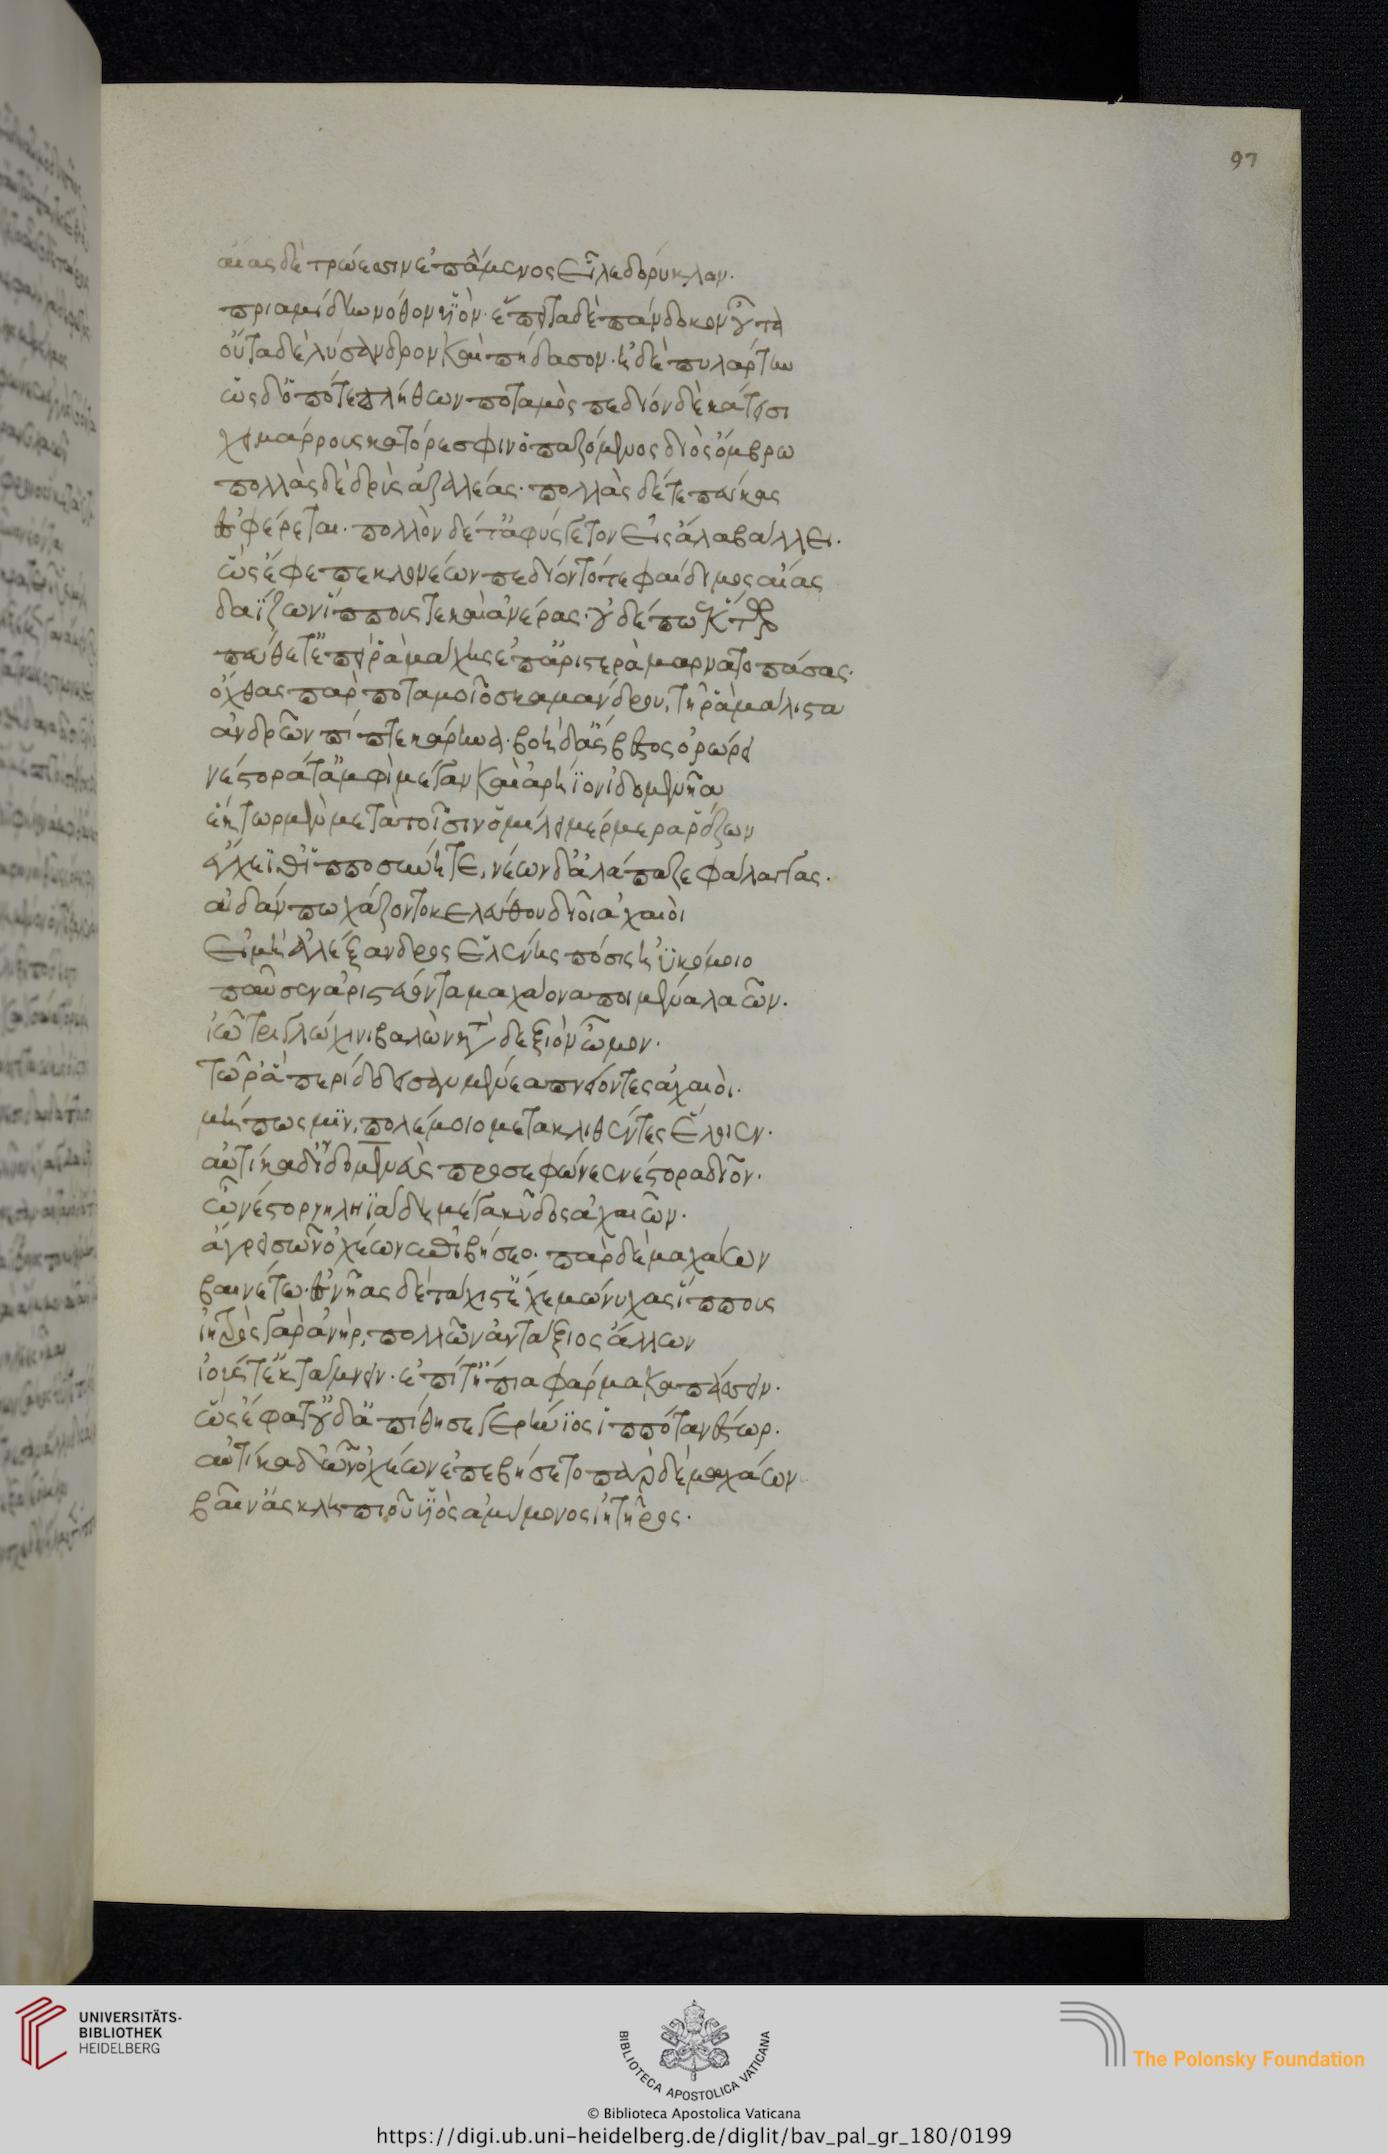 97
αἴας δὲ τρώεσσιν ἐπάλμενος εἷλε δόρυκλον.
πριαμίδην νόθον υἱὸν· ἔπειτα δὲ πάνδοκον οὖτα
οὖτα δὲ λύσανδρον καὶ πήδασον· ἠδὲ πυλάρτην
ὡς δ' ὁπότε πλήθων ποταμὸς πεδιόνδε κάτεισι
χειμάρρους κατόρεσφιν ὀπαζόμενος διὸς ὄμβρω
πολλὰς δὲ δρῦς ἀζαλέας· πολλὰς δέ τε πεύκας
ἐσφέρεται· πολλὸν δέ τ' ἀφυσγετὸν εἰς ἅλα βάλλει.
ὣς ἔφεπε κλονέων πεδίον τότε φαίδιμος αἴας
δαΐζων ἵππους τε καὶ ἀνέρας· οὐδέ πω ἕκτωρ
πεύθετ' ἐπεί ῥα μάχης ἐπ' ἀριστερὰ μάρνατο πάσης·
ὄχθας παρ ποταμοῖο σκαμάνδρου, τῆ ῥα μάλιστα
ἀνδρῶν πίπτε κάρηνα· βοὴ δ' ἄσβεστος ὀρώρει
νέστορά τ' ἀμφὶ μέγαν καὶ ἀρήϊον ἰδομενῆα
ἕκτωρ μὲν μετὰ τοῖσιν ὁμίλει μέρμερα ῥέζων
ἔγχεΐ θ' ἱπποσύνη τε, νέων δ' ἀλάπαζε φάλαγγας.
οὐδ' ἄν πω χάζοντο κελεύθου δῖοι ἀχαιοὶ
εἰ μὴ ἀλέξανδρος ἑλένης πόσις ἠϋκόμοιο
παῦσεν ἀριστεύοντα μαχάονα ποιμένα λαῶν.
ἰῶ τριγλώχινι βαλὼν κατὰ δεξιὸν ὦμον.
τῶ ῥα περίδδεισαν μένεα πνείοντες ἀχαιοὶ.
μήπως μιν, πολέμοιο μετακλιθέντες ἕλοιεν.
αὐτίκα δ' ἰδομενεὺς προσεφώνεε νέστορα δῖον.
ὦ νέστορ νηληϊάδη μέγα κῦδος ἀχαιῶν.
ἄγρει σῶν ὀχέων ἐπιβήσεο· πὰρ δὲ μαχάων
βαινέτω· ἐς νῆας δὲ τάχιστ' ἔχε μώνυχας ἵππους
ἰητρὸς γὰρ ἀνὴρ, πολλῶν ἀντάξιος ἄλλων
ἰούς τ' ἐκτάμνειν· ἐπί τ' ἤπια φάρμακα πάσσειν.
ὣς ἔφατ' οὐδ' ἀπίθησε γερήνιος ἱππότα νέστωρ.
αὐτίκα δ' ὧν ὀχέων ἐπεβήσετο πὰρ δὲ μαχάων
βαῖν' ἀσκληπιοῦ υἱὸς ἀμύμονος ἰητῆρος.
UNIVERSITÄTS-
BIBLIOTHEK
HEIDELBERG
BIBLIOTECA APOSTOLICA VATICANA
The Polonsky Foundation
© Biblioteca Apostolica Vaticana
https://digi.ub.uni-heidelberg.de/diglit/bav_pal_gr_180/0199